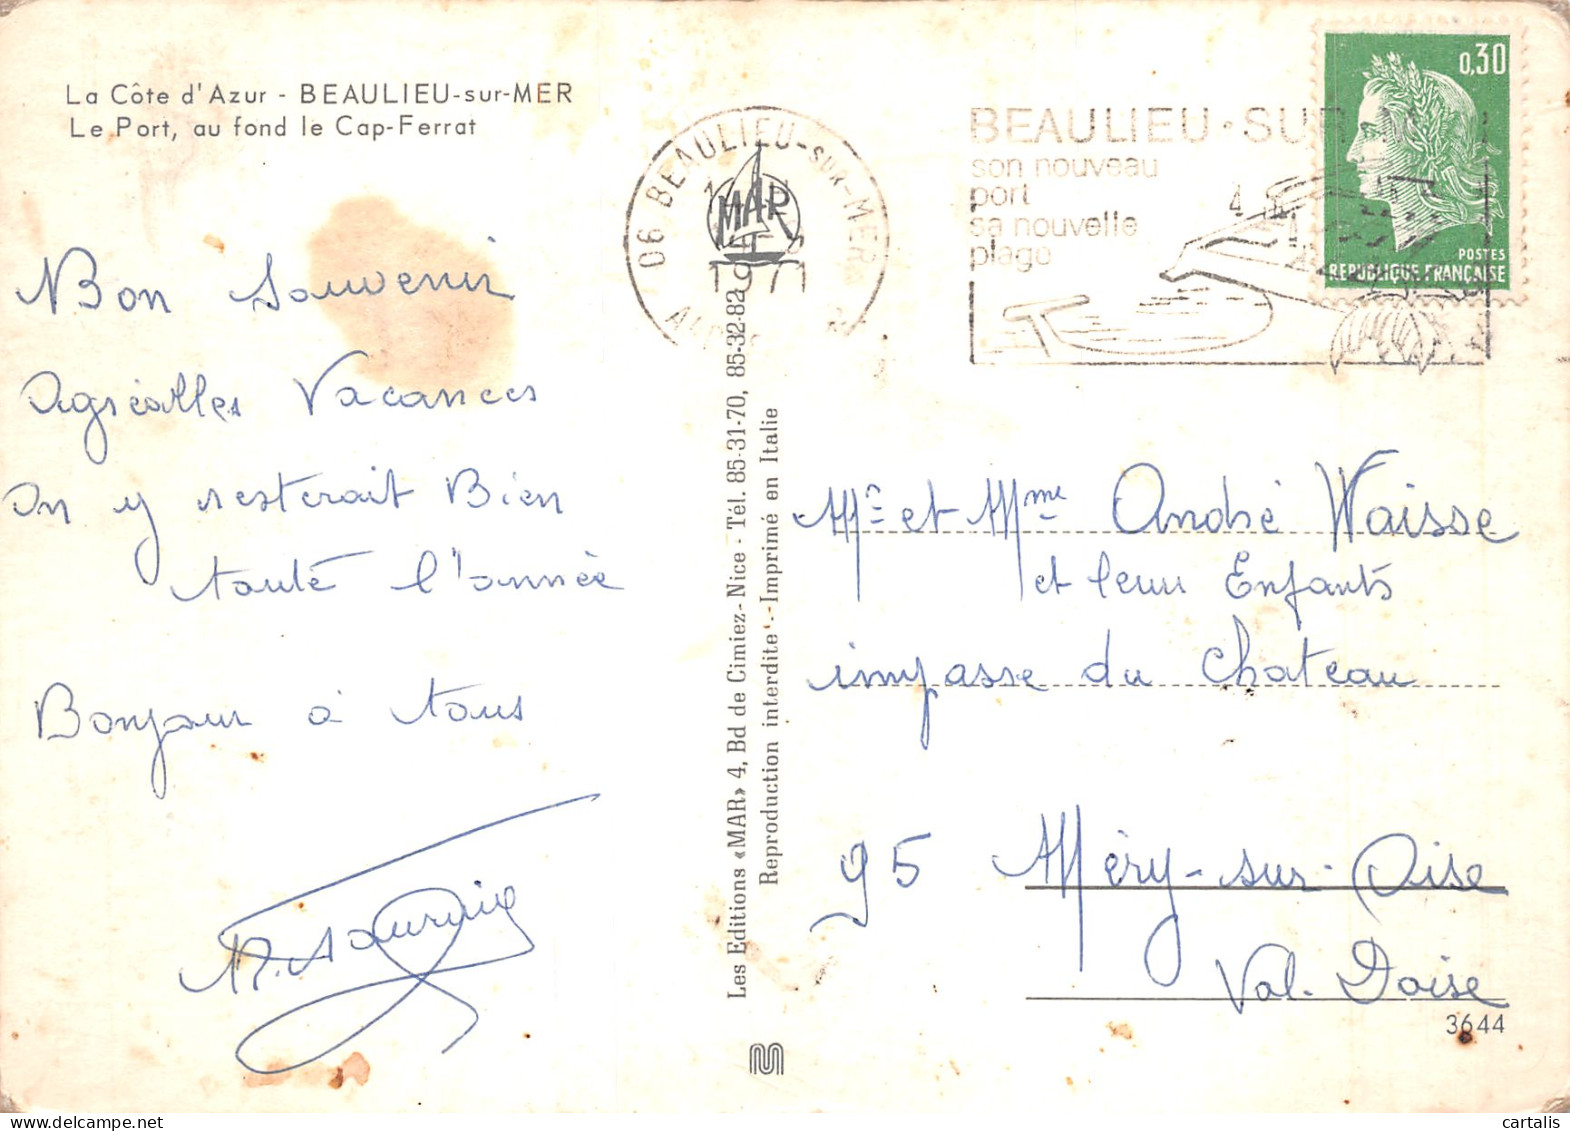 La Côte d'Azur - BEAULIEU-sur-MER
Le Port, au fond le Cap-Ferrat
Bon Souvenir
Agréables Vacances
On y resterait Bien
toute l'année
Bonjour à tous
06 BEAULIEU-SUR-MER
1971
MAR
BEAULIEU-SUR
son nouveau
port
sa nouvelle
plage
0,30
POSTES
REPUBLIQUE FRANÇAISE
Les Editions «MAR» 4, Bd de Cimiez - Nice - Tél. 85-31-70, 85-32-82
Reproduction interdite - Imprimé en Italie
Mr et Mme André Waisse
et leurs Enfants
impasse du Chateau
95 Méry-sur-Oise
Val-Doise
3644
cartalis